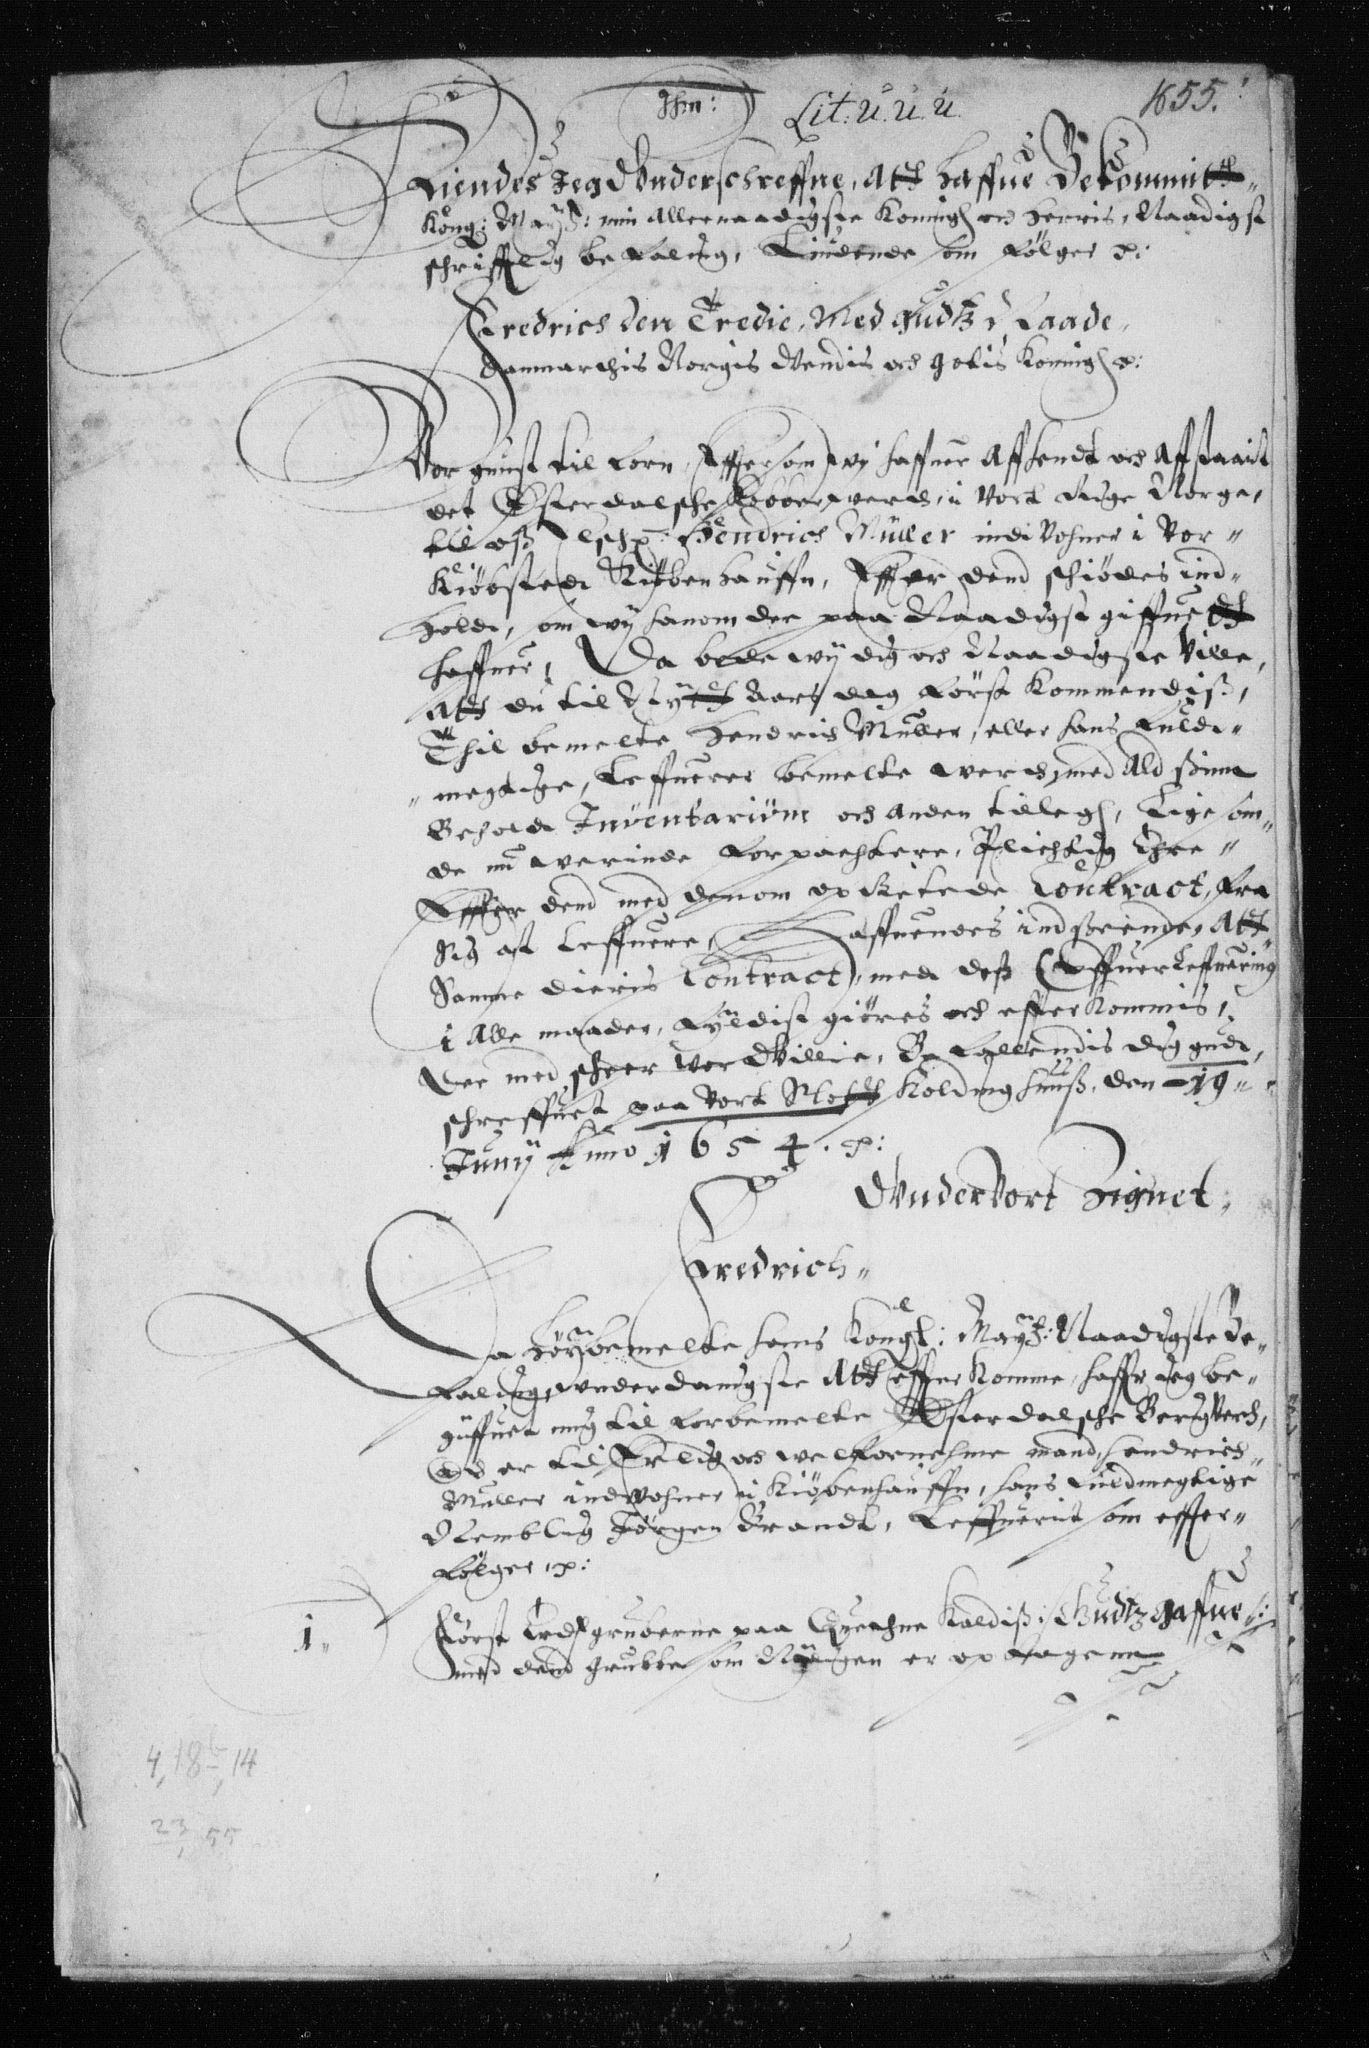 Ihm: Lit: u. u. u. 1655.
Kiendes Jeg Underschreffne, Att Haffue Bekommitt
Kong: Maytz: min Allernaadigste Koning och Herris, Naadigst
schrifftlig befaling, Liudende som følger p:
Fredrich den Tredie, Med Gudtz Naade,
Danmarchis Norgis Wendis och Gotis Koning p:
Vor gunst tilforn, Efftersom wy haffuer Affhendt och Affstaait
det Østerdalsche Kobberwerch, i Vort Rige Norge,
till oss Elsch: Hendrich Müller indvohner i Vor
Kiöbsted Kiøbenhauffn, Effter dend schiödes ind-
hold, som wy hanom der paa Naadigst giffuett
haffuer, Da bede wÿ dig och Naadigste Ville,
Att du til Nytt Aars dag först Kommendis,
Thil bemelte Hendrich Müller, eller hans fuld-
megtige, Leffuerer bemelte werch, med Ald sinne
Behold Inventarium och anden tilleg, Lige som
de nu werinde forpachtere, Plichtig Ehre
Effter dend med dennom oprettede Contract, fra
sig att Leffuere, Haffuendes indseende, Att
Samme dieris Contract, med dess Offuerleffuering
i Alle maader, fyldist giöres och effterkommis,
Der med scheer Vor Villie, Befallendis dig gudt,
schreffuet paa Vort Slott Kolding huuss, den 19
Juny Anno 1654. p:
Under Vort Zignet
Fredrich
Da Höybemelte hans Kongl: Maytz: Naadigste Be-
faling, underdanigste Att effterkomme, haffr Jeg be-
giffuet mig til forbemelte Østerdalsche Bergverch,
Och er til Erlig och welfornehme mand, Hendrich
Müller indwohner i Kiöbenhauffn, hans fuldmegtige
Nemblig Jörgen Brandt, Leffuerit som effter-
følger p:
1 Först Ertzgruberne paa Quechne Kaldis: Gudtz gaffue:
med dend grubbe som Nyligen er optagenn
4, 18 , 14
23, 55